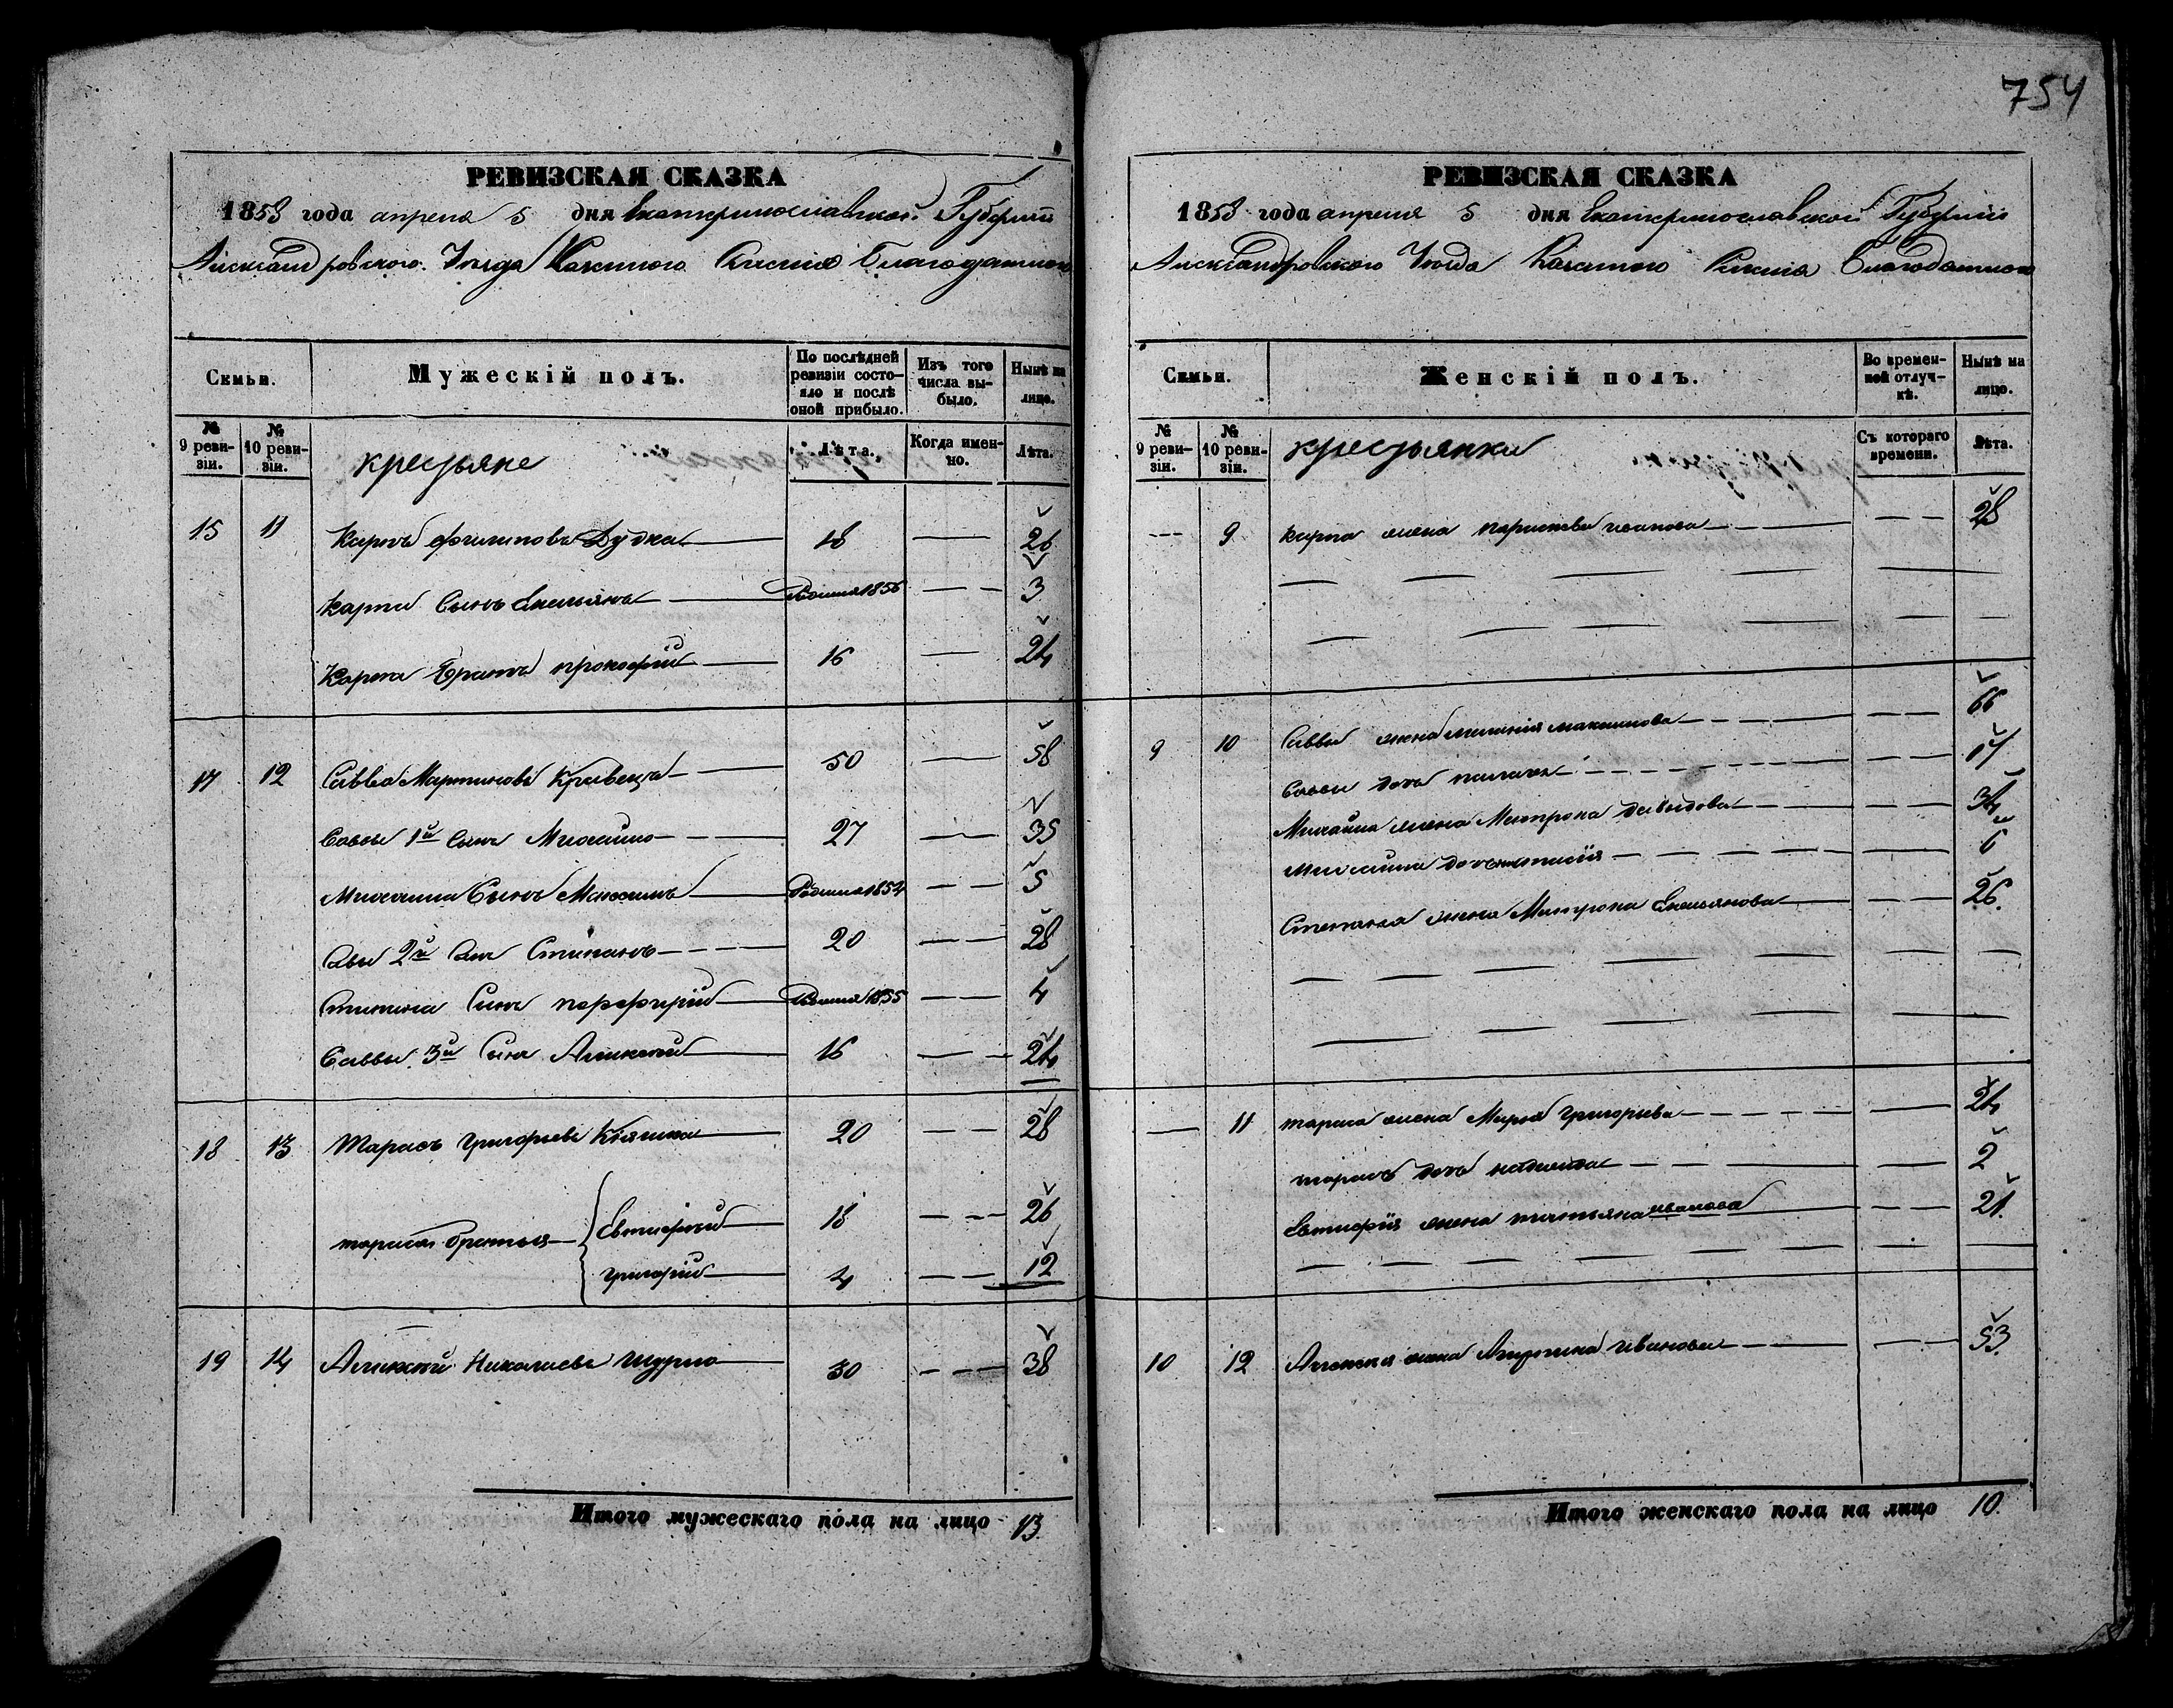 754
РЕВИЗСКАЯ СКАЗКА
1858 года апреля 5 дня Екатеринославской Губернии
Александровского Уезда Казенного Селения Благодатного
Семьи. Мужескій полъ. По послѣдней ревизіи состояло и послѣ оной прибыло. Изъ того числа выбыло. Нынѣ на лицо.
№ 9 ревизіи. № 10 ревизіи. крестьяне Лѣта. Когда именно. Лѣта.
15 11 Карпъ Филиповъ Дудка 18 — 26
Карпа Сынъ Емельянъ Родился 1856 — — 3
Карпа Братъ прокофій 16 — 24
17 12 Савва Мартиновъ Кравецъ 50 — 58
Саввы 1й Сынъ Михайло 27 — 35
Михаила Сынъ Максимъ Родился 1854 — — 5
Савы 2й Сын Степанъ 20 — — 28
Степана Сынъ порфирій Родился 1855 — — 4
Саввы 3й Сын Алексей 16 — — 24
18 13 Тарасъ григорьевъ Кляшка 20 — — 28
тараса братья Евтифий 18 — — 26
григорий 4 — — 12
19 14 Алексей Николаевъ Щурко 30 — — 38
Итого мужескаго пола на лицо 13.
РЕВИЗСКАЯ СКАЗКА
1858 года апреля 5 дня Екатеринославской Губернии
Александровского Уезда Казенного Селения Благодатного
Семьи. Женскій полъ. Во временной отлучкѣ. Нынѣ на лицо.
№ 9 ревизіи. № 10 ревизіи. крестьянки Съ котораго времени. Лѣта.
--- 9 карпа жена парасковья иванова — — 28
9 10 Саввы жена мелания максимова — — 66
Саввы дочь пелагея — — 17
Михаила жена Матрона давыдова — — 34
михаила дочь анастасия — 6
Степана жена Матрона Емельянова — — 26.
— 11 тараса жена Марья григорьева — 24
тараса дочь надежда — — 2
Евтифія жена татьяна иванова — — 21.
10 12 Алексея жена Агрипина иванова — — 53.
Итого женскаго пола на лицо 10.